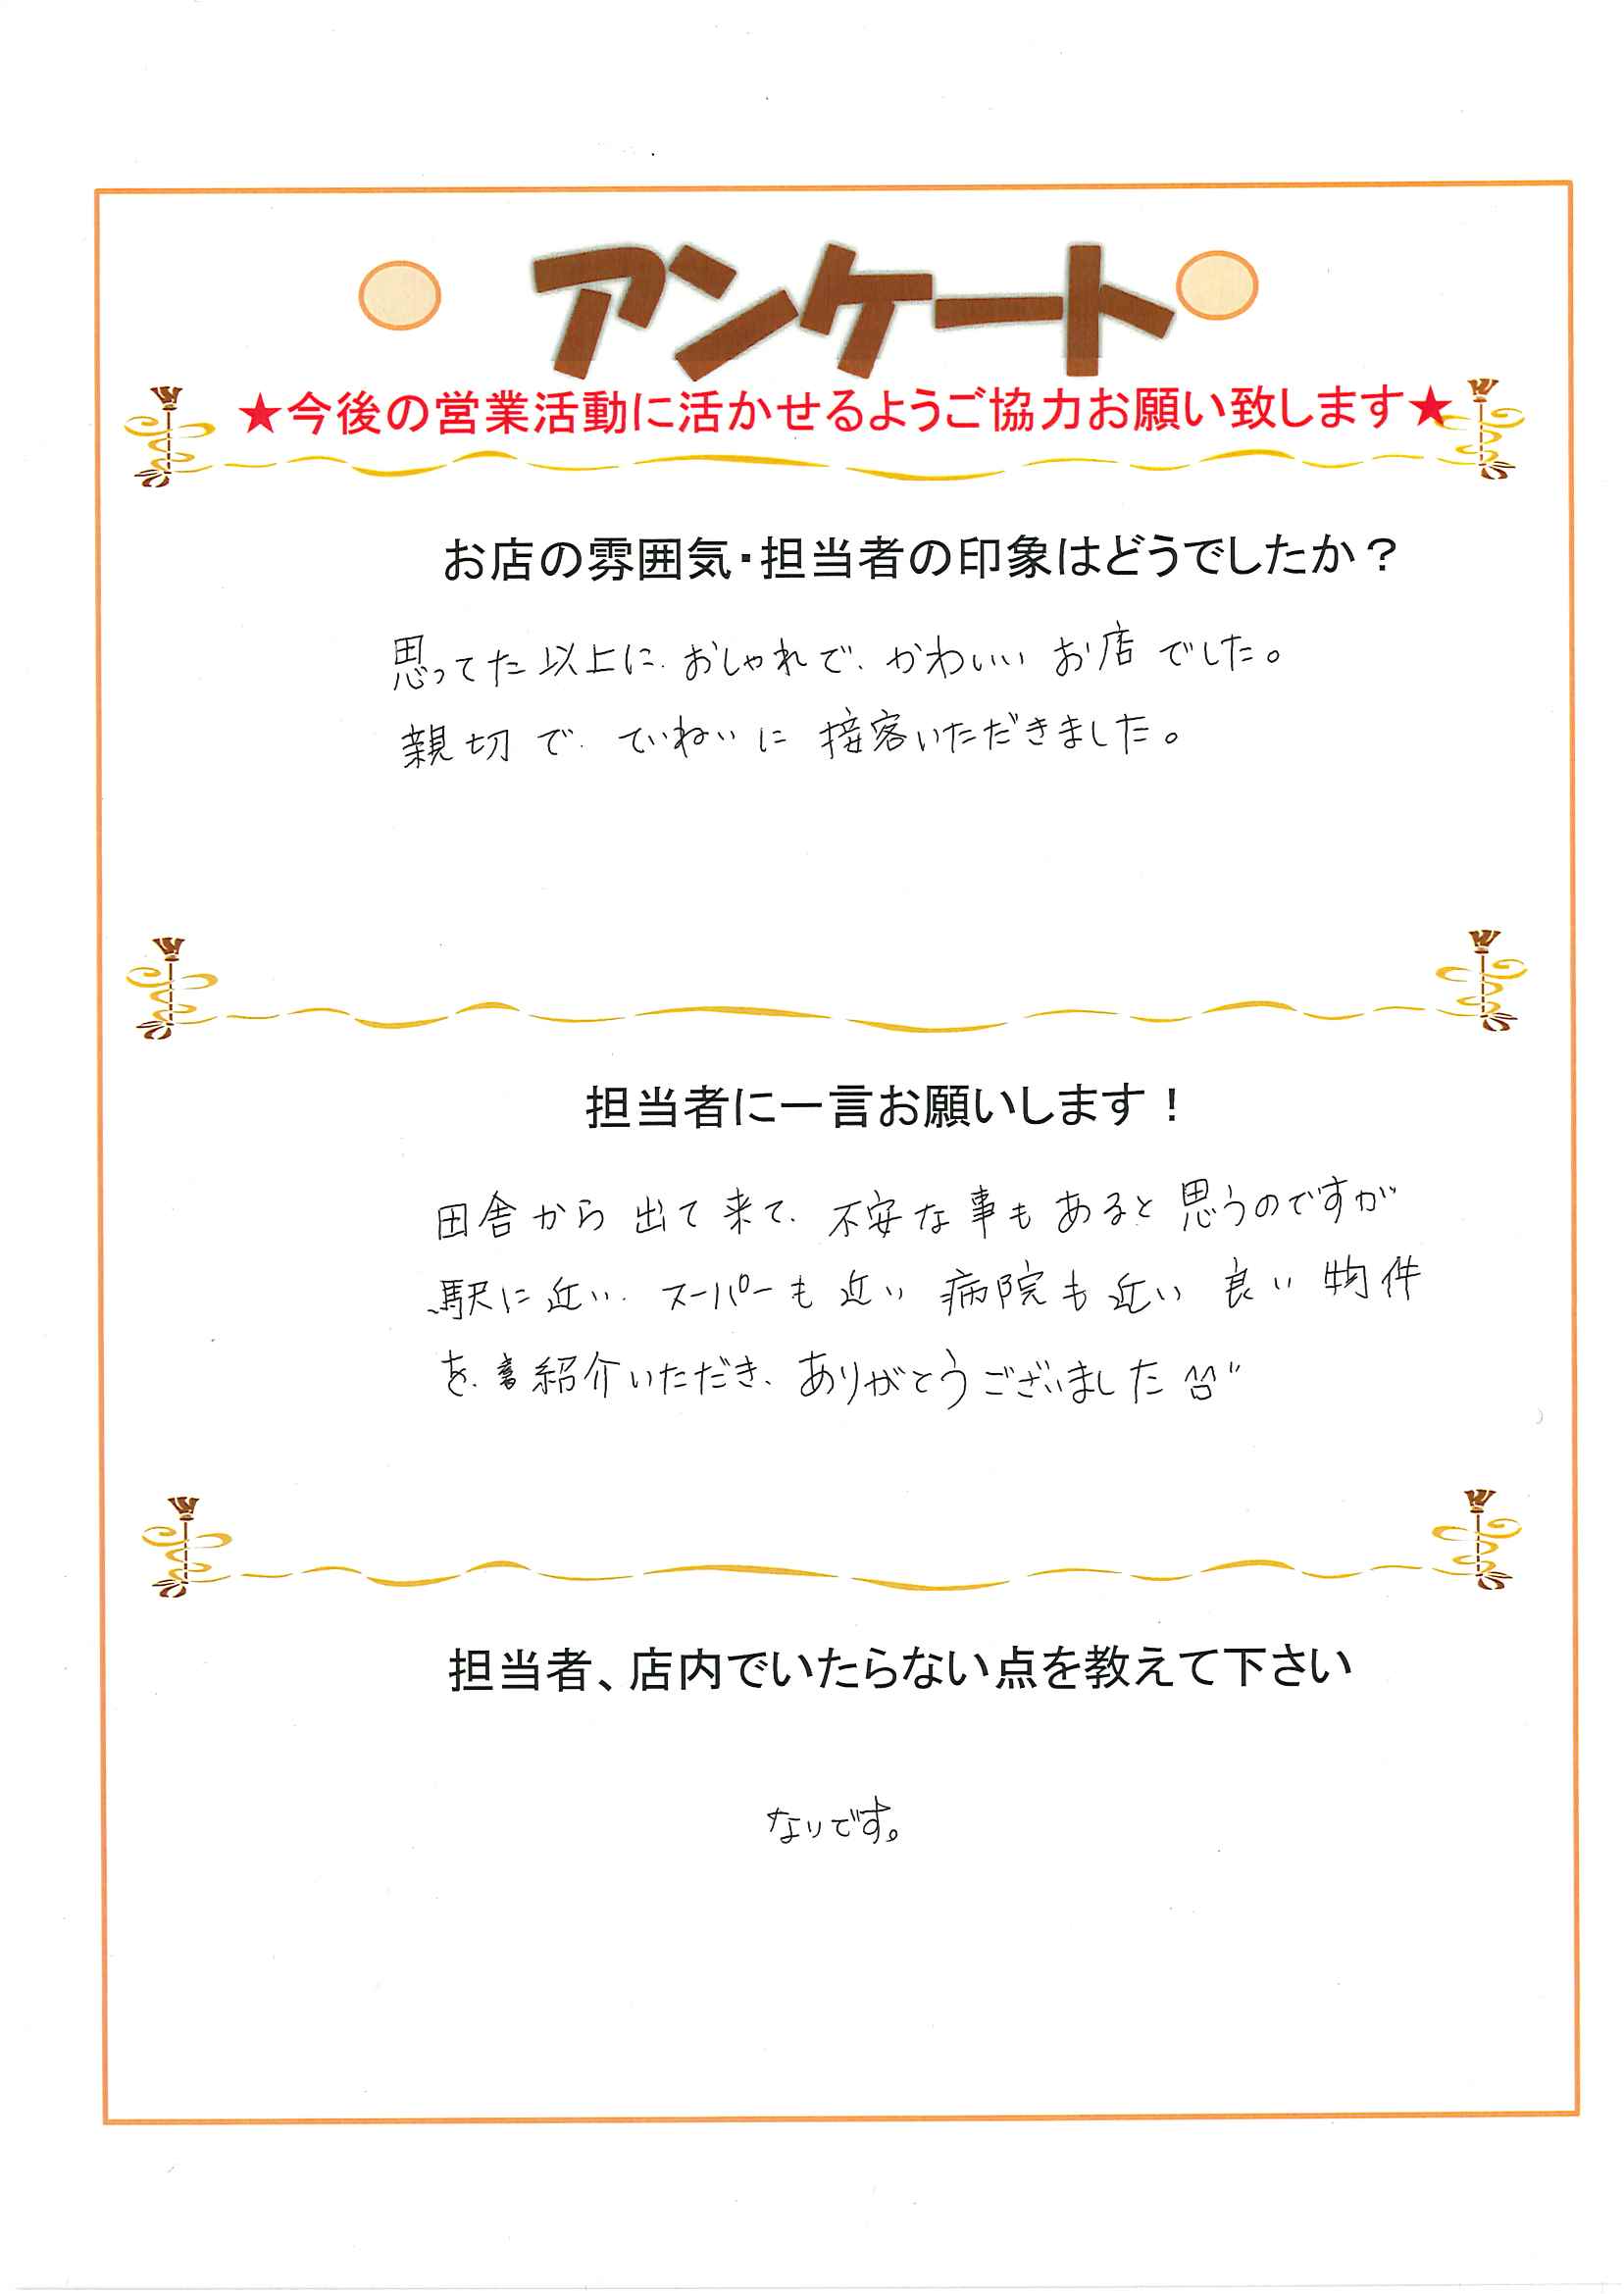 アンケート
★今後の営業活動に活かせるようご協力お願い致します★
お店の雰囲気・担当者の印象はどうでしたか？
思ってた以上に、おしゃれで、かわいい お店でした。
親切で、ていねいに 接客いただきました。
担当者に一言お願いします！
田舎から 出て来て、不安な事もあると思うのですが
駅に近い、スーパーも近い 病院も近い 良い物件
を、紹介いただき、ありがとうございました
担当者、店内でいたらない点を教えて下さい
ないです。